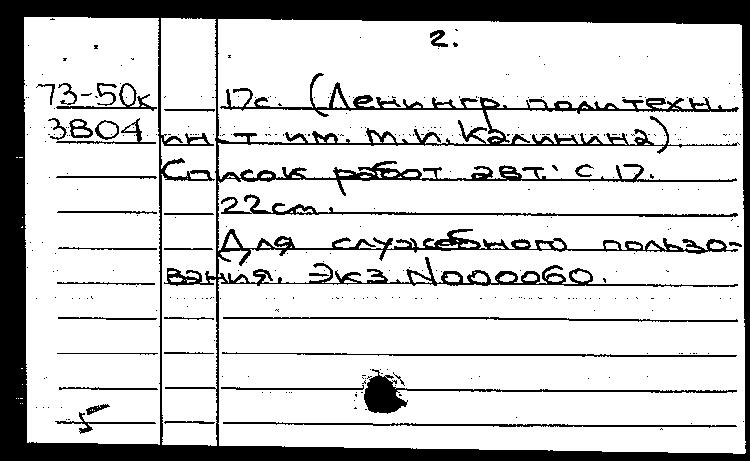 2.
73-50к 17с. (Ленингр. политехн.
3804 ин-т им. М.И. Калинина)
Список работ авт.: с. 17.
22cm.
Для служебного пользо-
вания. Экз. N000060.
5